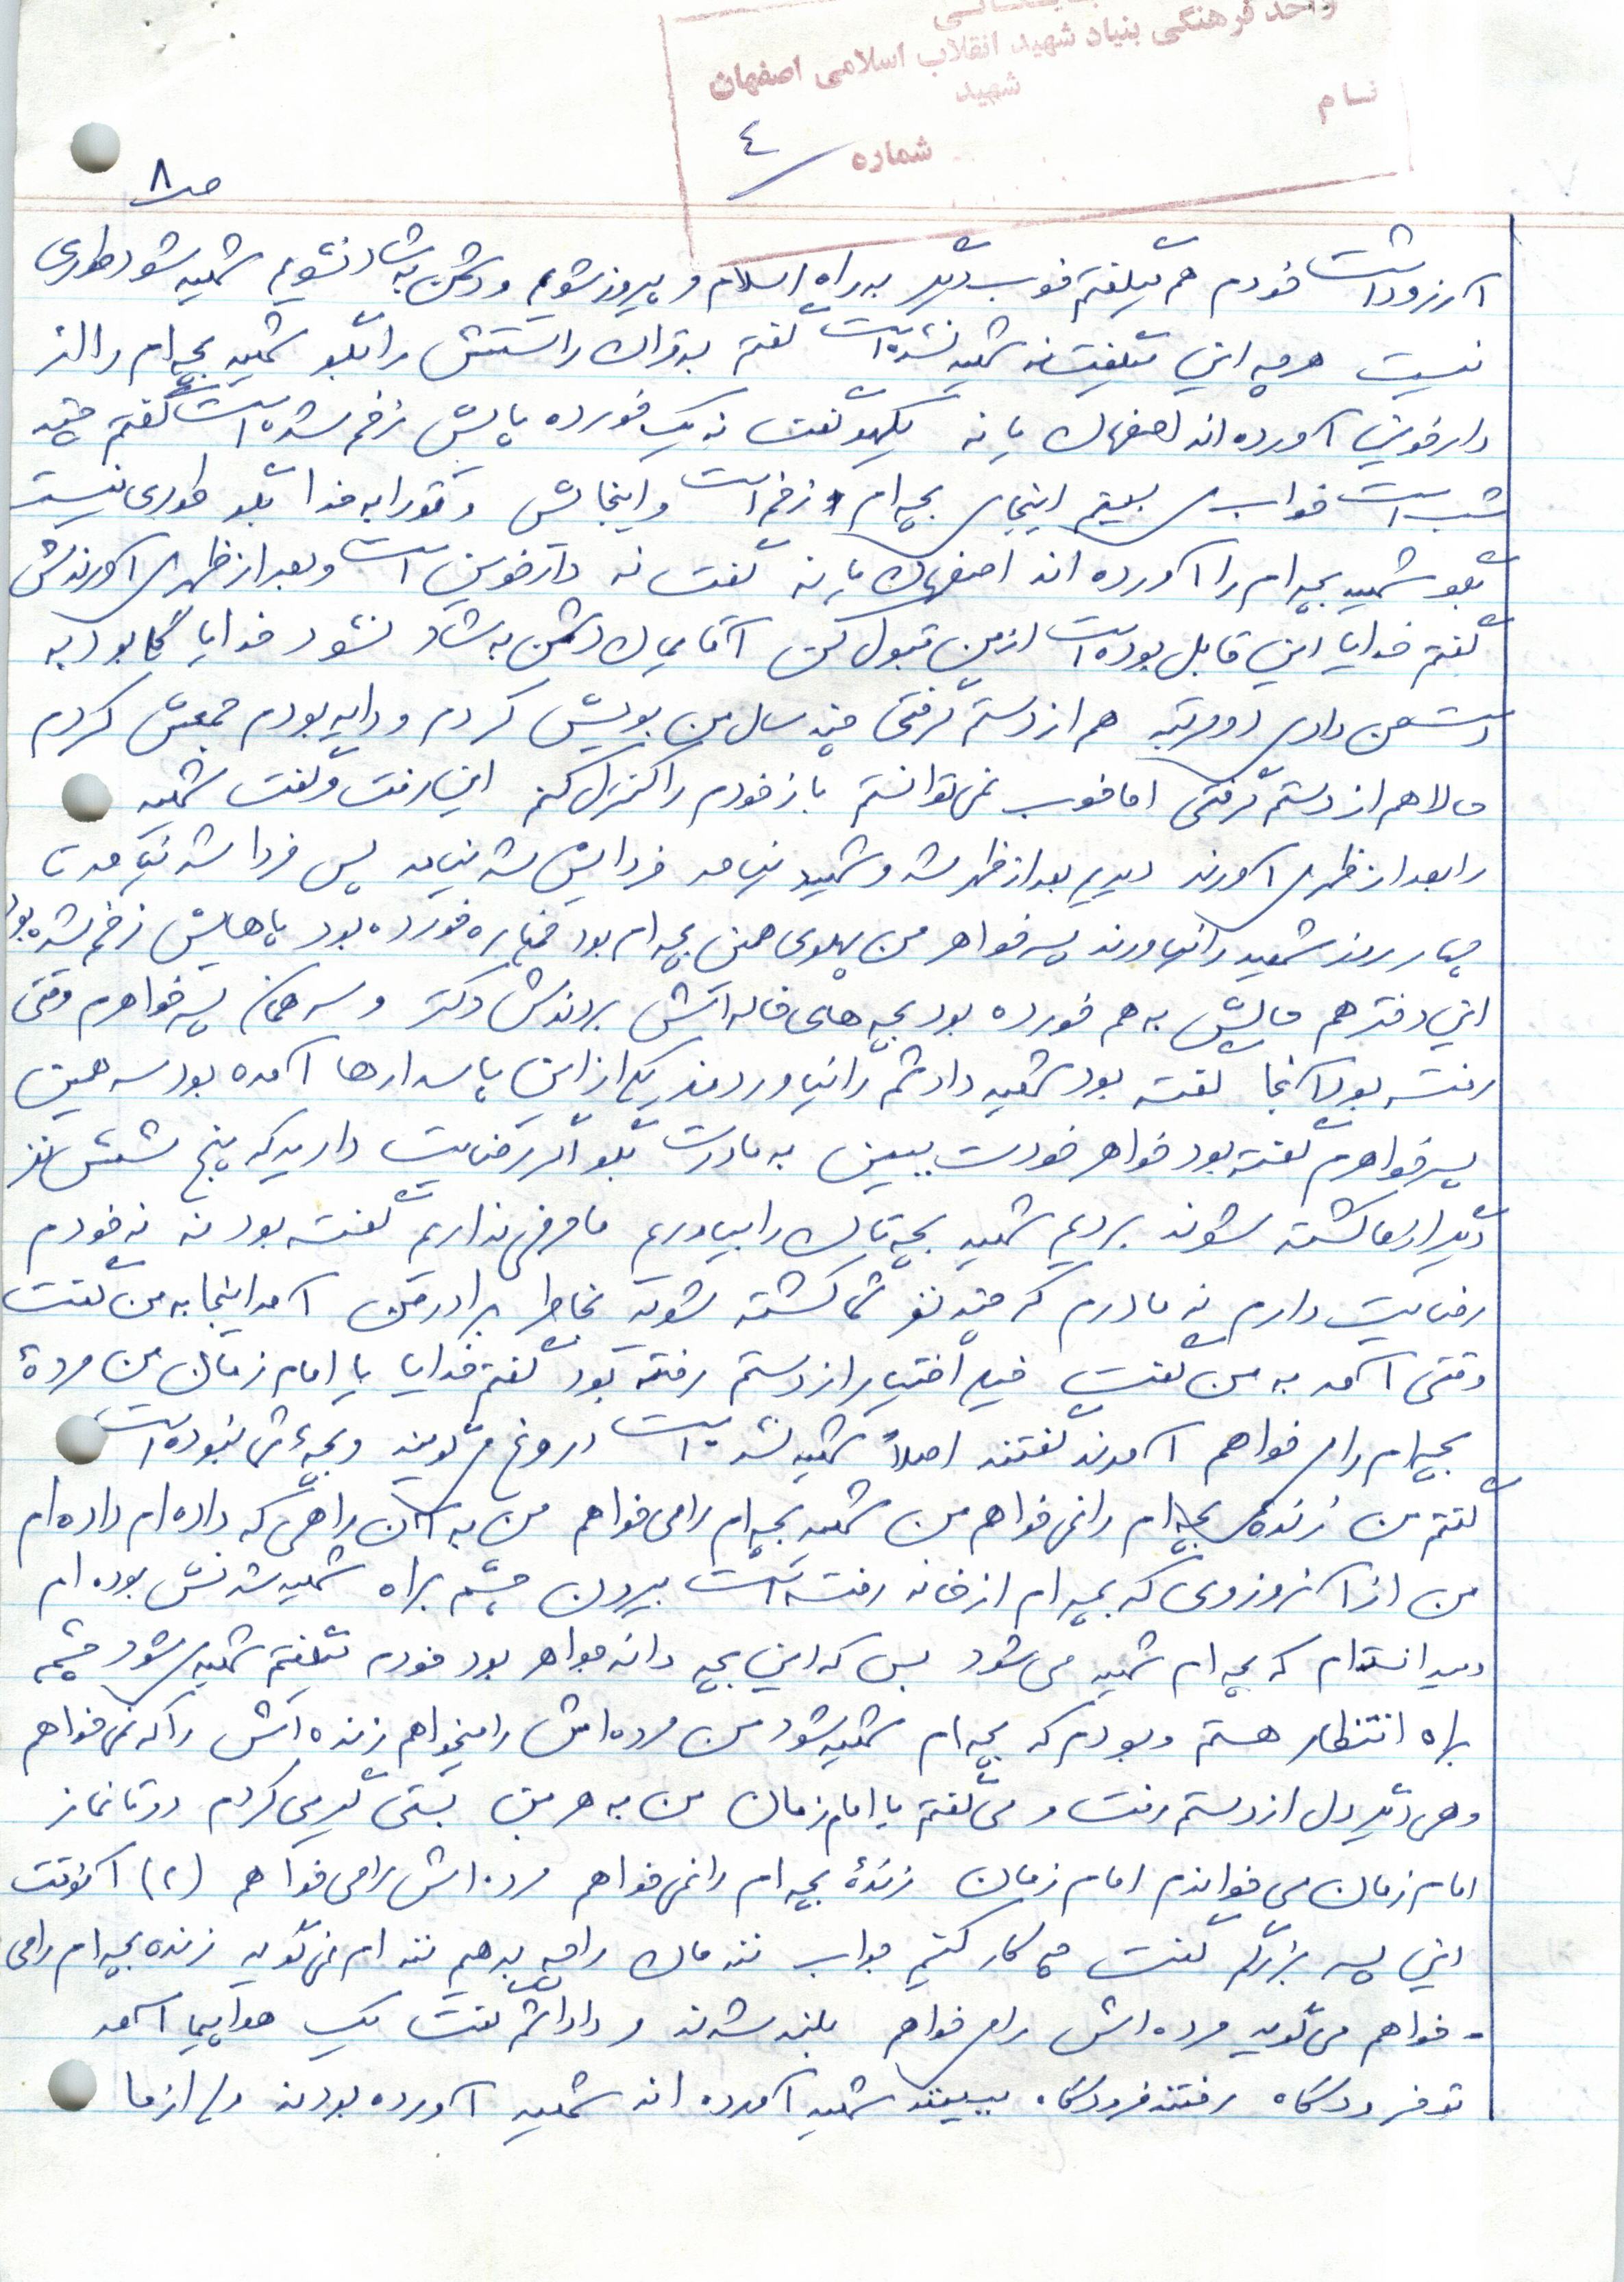 بایگانی
واحد فرهنگی بنیاد شهید انقلاب اسلامی اصفهان
نام شهید
شماره ٤
صـ ۸
آرزو داشت خودم هم میگفتم خوب دیگر به راه اسلام و پیروز شویم و دشمن به شاد نشویم شهید شود طوری
نیست هر چه این میگفت نه شهید نشده است گفتم به قرآن راستش را بگو شهید بچه ام را از
دارخوین آورده اند اصفهان یا نه یکهو گفت نه یک خورده پایش زخم شده است گفتم چند
شب است خواب می بینم اینجای بچه ام زخم است و اینجایش و تو را به خدا بگو طوری نیست
بگو شهید بچه ام را آورده اند اصفهان یا نه گفت نه دارخوین است و بعد از ظهر می آورندش
گفتم خدایا این قابل بوده است از من قبول کن آقایمان دشمن به شاد نشود خدایا گل بود به
دست من دادی دو مرتبه هم از دستم گرفتی چند سال من بویش کردم و دایه بودم جمعش کردم
حالا هم از دستم گرفتی اما خوب نمی توانستم باز خودم را کنترل کنم این رفت و گفت شهید
را بعد از ظهر می آورند دیدیم بعد از ظهر شد و شهید نیامد فردایش شد نیامد پس فردا شد نیامد تا
چهار روز شهید را نیاورند پسر خواهر من پهلوی همین بچه ام بود خمپاره خورده بود پاهایش زخم شده بود
این دختر هم حالش به هم خورده بود بچه های خاله اش بردندش دکتر و سه همان پسر خواهرم وقتی
رفته بود آنجا گفته بود شهید دادشم را نیاوردند یکی از این پاسدارها آمده بود سه همین
پسر خواهرم گفته بود خواهر خودت ببین به مادرت بگو اگر رضایت دارید که پنج شش نفر
دیگر از ما کشته شوند برویم شهید بچه تان را بیاوریم ما حرفی نداریم گفته بود نه نه خودم
رضایت دارم نه مادرم که چند نفر شما کشته شوید بخاطر برادر من آمد اینجا به من گفت
وقتی آمد به من گفت خیلی اختیار از دستم رفته بود گفتم خدایا یا امام زمان من مردهٔ
بچه ام را می خواهم آمدند گفتند اصلاً شهید نشده است دروغ می گویند و بچهٔ ش نبوده است
گفتم من زندهٔ بچه ام را نمی خواهم من شهید بچه ام را می خواهم من به آن راهی که داده ام داده ام
من از آنروزوی که بچه ام از خانه رفته است بیرون چشم براه شهید شدنش بوده ام
میدانستم که بچه ام شهید می شود بس که این بچه دانه جواهر بود خودم میگفتم شهید می شود چشم
براه انتظار هستم و بودم که بچه ام شهید شود من مرده اش را میخواهم زنده اش را که نمی خواهم
و هی دیگر دل از دستم رفت و می گفتم یا امام زمان من به هر من بستی گیر می کردم دو تا نماز
امام زمان می خواندم امام زمان زندهٔ بچه ام را نمی خواهم مرده اش را می خواهم (۲) آنوقت
این پسر بزرگم گفت چه کار کنیم جواب ننه مان را چه بدهیم ننه ام نمی گوید زنده بچه ام را می
- خواهم می گوید مرده اش را می خواهم بلند شدند و داداشم گفت یک هواپیما آمد
تو فرودگاه رفتند فرودگاه ببینند شهید آمرده اند شهید آورده بودند ولی از ما